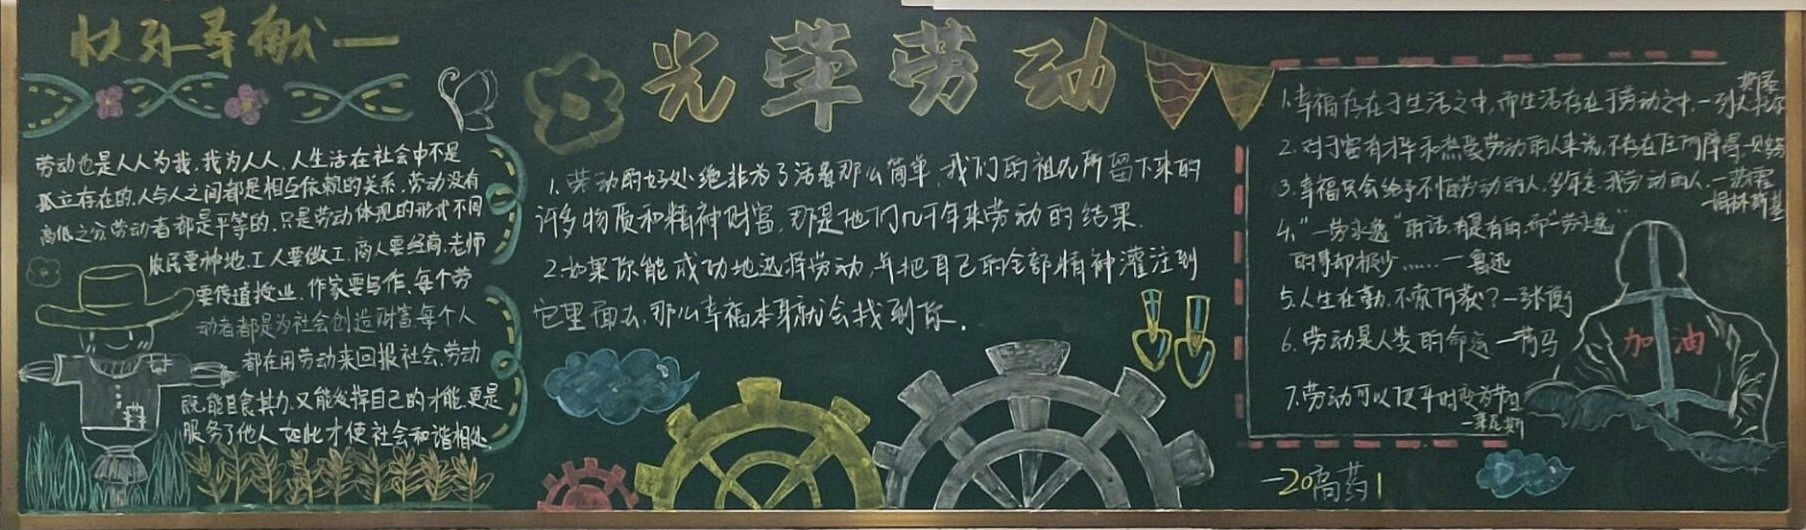 快乐奉献一
劳动也是人人为我,我为人人,人生活在社会中不是
孤立存在的,人与人之间都是相互依赖的关系,劳动没有
高低之分,劳动者都是平等的,只是劳动体现的形式不同
农民要种地,工人要做工,商人要经商,老师
要传道授业,作家要写作,每个劳
动者都是为社会创造财富,每个人
都在用劳动来回报社会,劳动
既能自食其力,又能发挥自己的才能,更是
服务了他人,如此才使社会和谐相处
光荣劳动
1.劳动的好处绝非为了活着那么简单,我们的祖先所留下来的
许多物质和精神财富,那是他们几千年来劳动的结果.
2.如果你能成功地选择劳动,并把自己的全部精神灌注到
它里面去,那么幸福本身就会找到你.
1.幸福存在于生活之中,而生活存在于劳动之中.一列夫托尔
斯泰
2.对于富有才华和热爱劳动的人来说,不存在任何障碍.
3.幸福只会给予不怕劳动的人,多年忘我劳动的人.
4."一劳永逸"的话,有是有的,而"一劳永逸"
的事却极少……一鲁迅
5.人生在勤,不索何获?一张衡
6.劳动是人类的命运一荷马
7.劳动可以使平时变为节日
加油
一20高药1